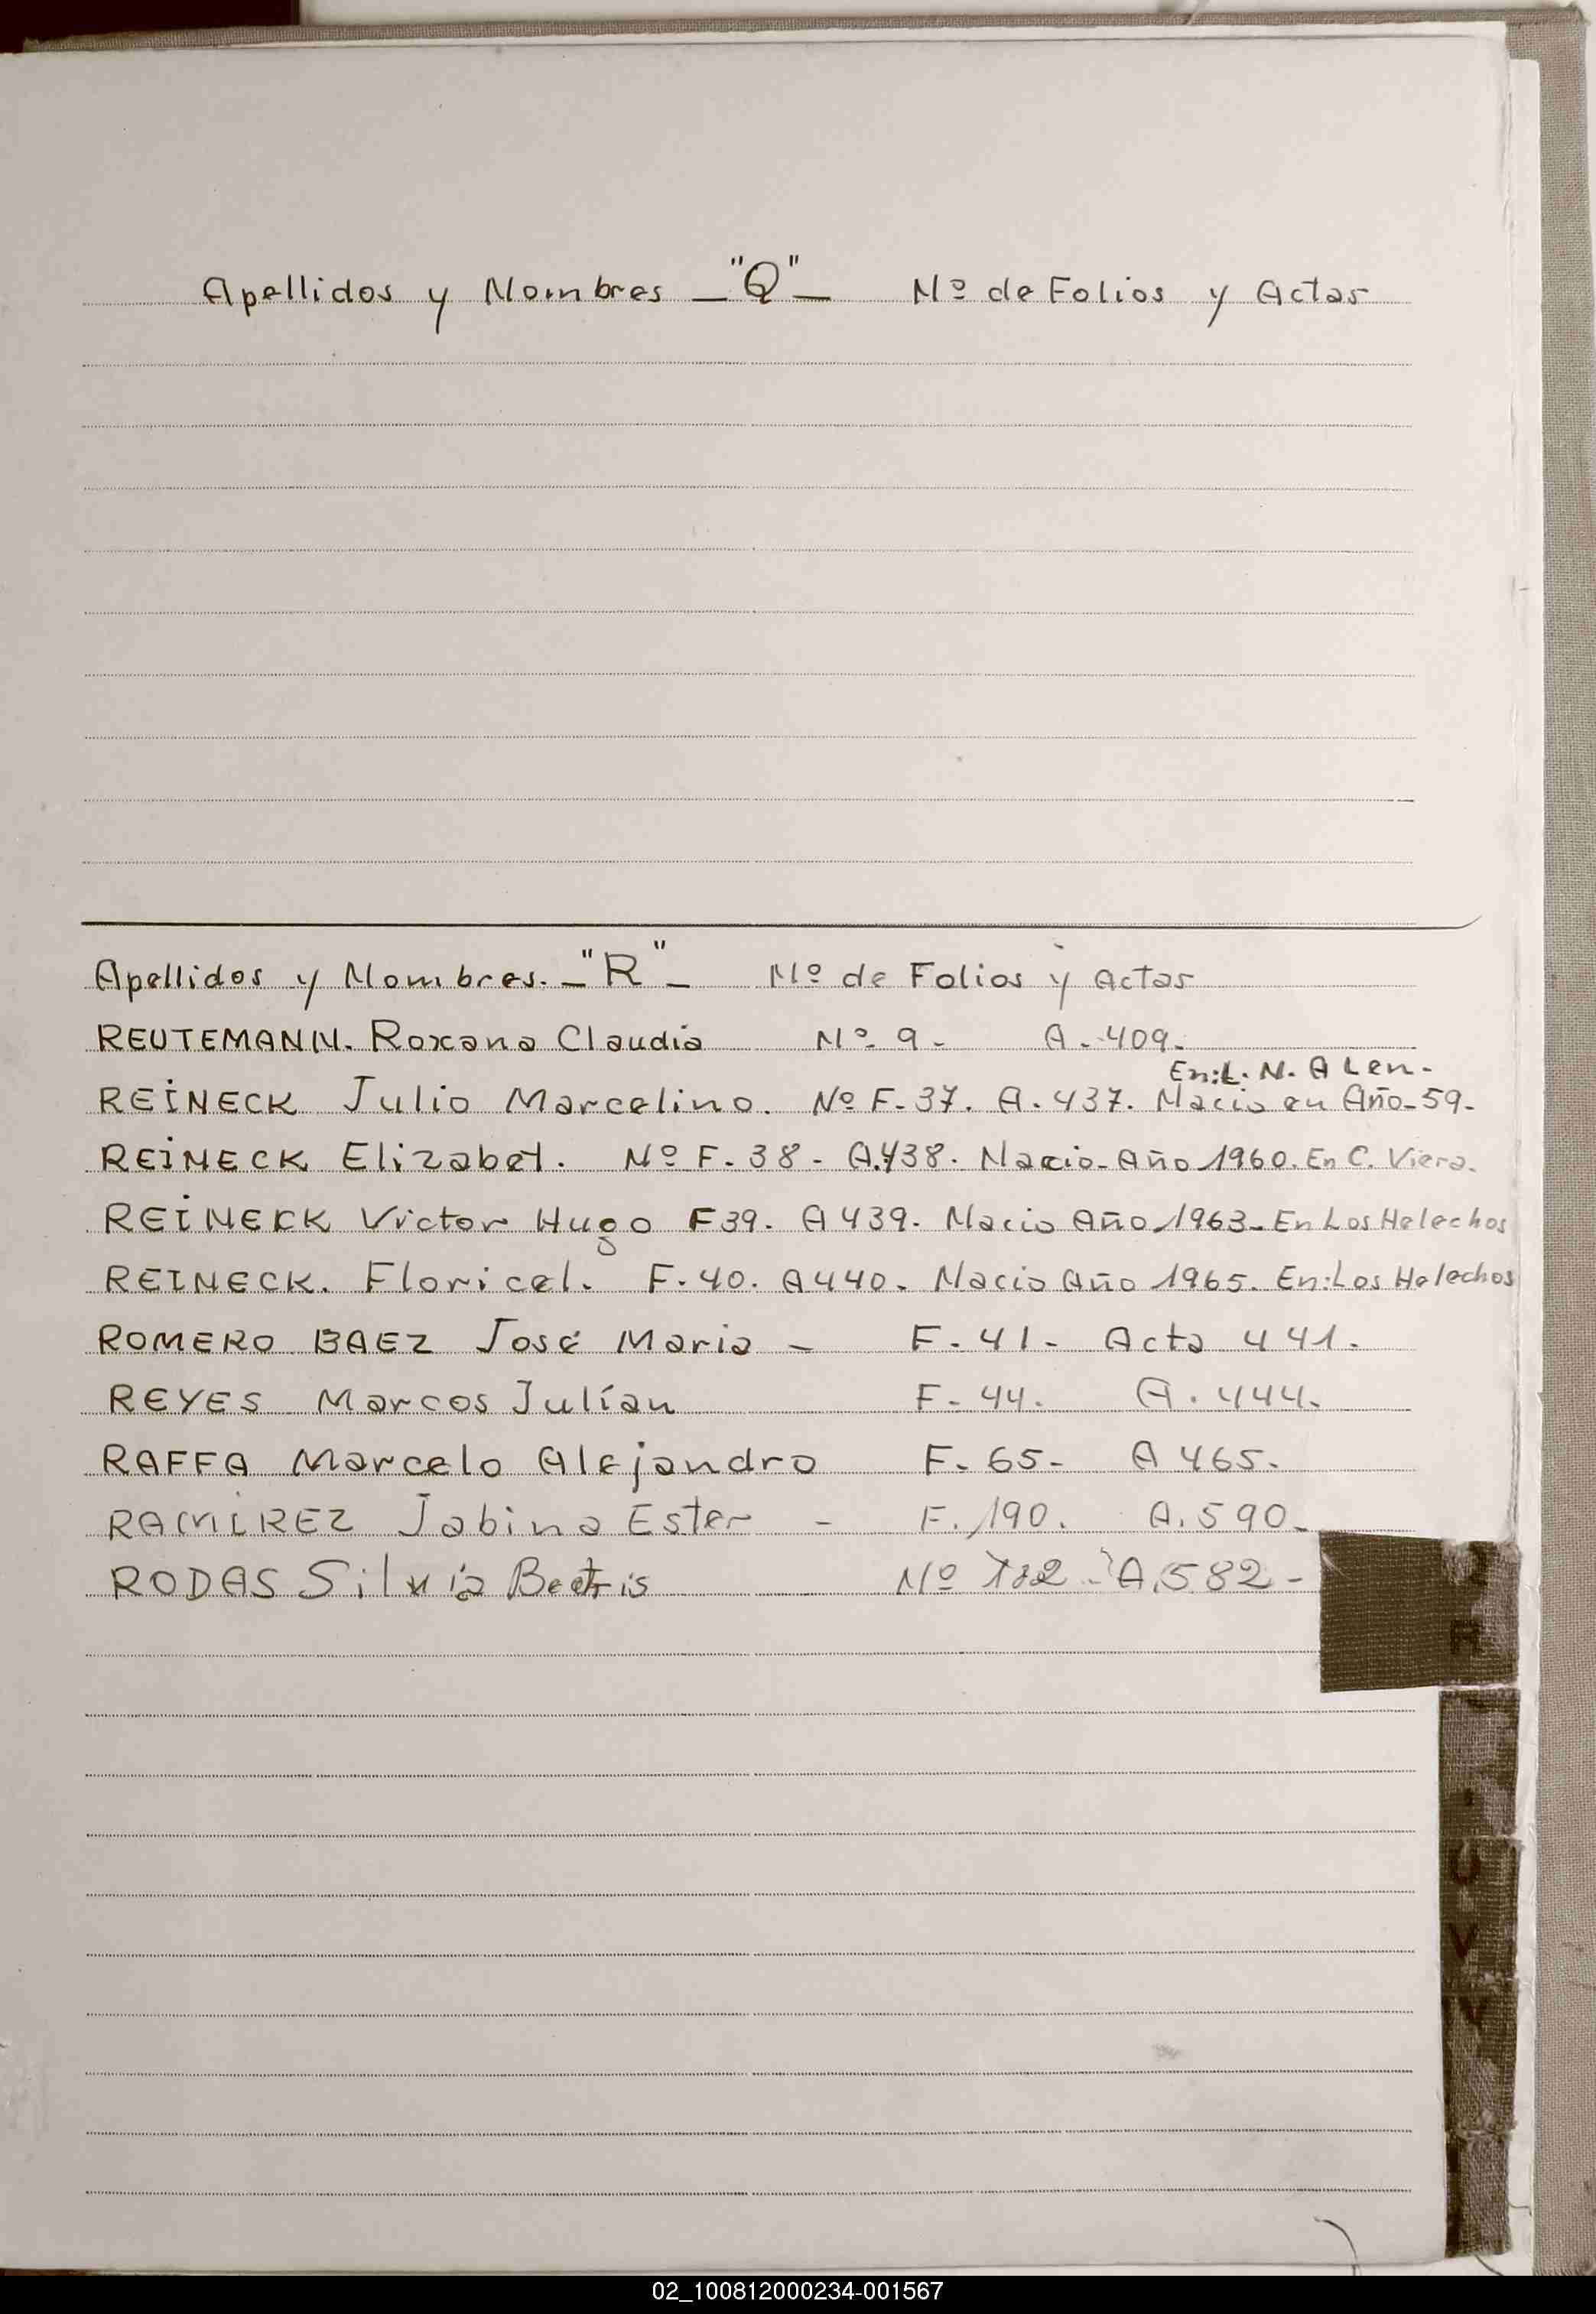 Apellidos y Nombres - "Q" - Nº de Folios y Actas
Apellidos y Nombres. - "R" - Nº de Folios y Actas
REUTEMANN. Roxana Claudia Nº- 9- A-409-
En:L. N. ALen-
REINECK Julio Marcelino. Nº F-37. A.437. Nacio en Año-59-
REINECK Elizabet. Nº F-38- A.438. Nacio-Año 1960. En C. Viera.
REINECK Victor Hugo F39. A439. Nacio Año 1963-En Los Helechos
REINECK. Floricel. F.40. A440. Nacio Año 1965. En:Los Helechos
ROMERO BAEZ José Maria - F-41- Acta 441.
REYES Marcos Julían F-44. A.444.
RAFFA Marcelo Alejandro F-65- A465-
RAMIREZ Jabina Ester - F.190. A.590-
RODAS Silvia Beatris Nº A.582-
R
U
V
Y
02_100812000234-001567